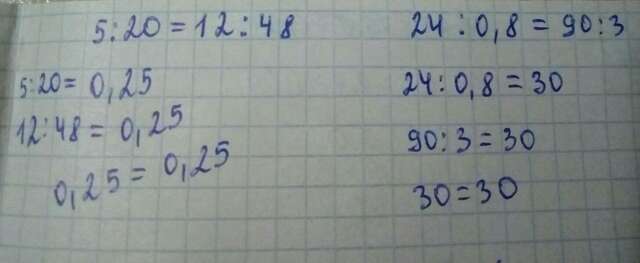 5:20=12:48
5:20=0,25
12:48=0,25
0,25=0,25
24:0,8=90:3
24:0,8=30
90:3=30
30=30